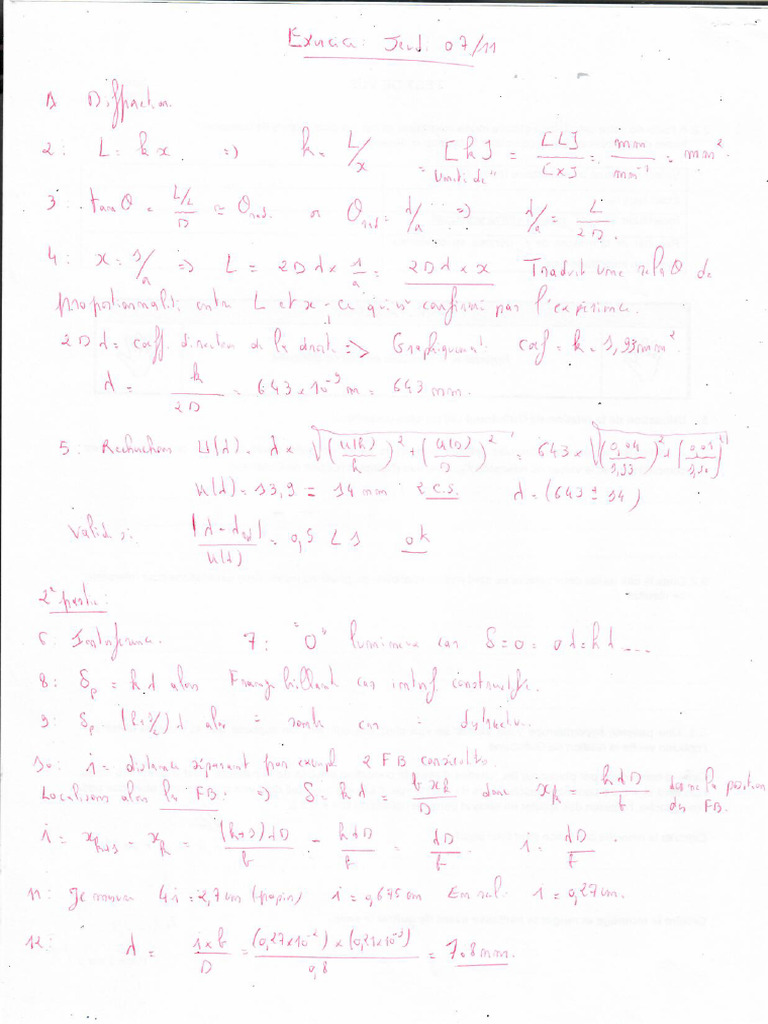 Exercice : Jeudi 07/11
1) Diffraction.
2 : L = k x => k = L/x [k] = [L]/[x] = mm/mm⁻¹ = mm².
"unité de"
3 : tanθ = (L/2)/D ≅ θrad. or θrad = λ/a => λ/a = L/2D.
4 : x = 1/a => L = 2Dλ × 1/a = 2Dλ × x Traduit une relaθ de
proportionnalité entre L et x - ce qui est confirmé par l'expérience.
2Dλ = coeff directeur de la droite => Graphiquement : coef = k = 1,93 mm².
λ = k/2D = 643 × 10⁻⁹ m = 643 nm.
5 : U(λ) = λ × √((u(k)/k)² + (u(D)/D)²) = 643 × √((0,04/1,93)² + ( )²)
u(λ) = 13,9 = 14 nm 2 C.S. λ = (643 ± 14)
Valid si : |λ - λ |/u(λ) = 0,5 < 1 ok
2° partie :
6 : Interférence. 7 : "O" lumineux car δ = 0 = 0λ = kλ ....
8 : δp = kλ alors Frange brillante car interf constructive.
9 : δp = (k+1/2)λ alors = sombre car = destructive.
10 : i = distance séparant par exemple 2 FB consécutives.
Localisons alors les FB : => δ = kλ = b xk/D donc xk = kλD/b donne la position
des FB.
i = xk+1 - xk = (k+1)λD/b - kλD/b = λD/b. i = λD/b
11 : Je mesure 4i = 2,7 cm (papier) i = 0,675 cm En réel : i = 0,27 cm.
12 : λ = i×b/D = (0,27×10⁻²) × (0,21×10⁻³)/0,8 = 708 nm.